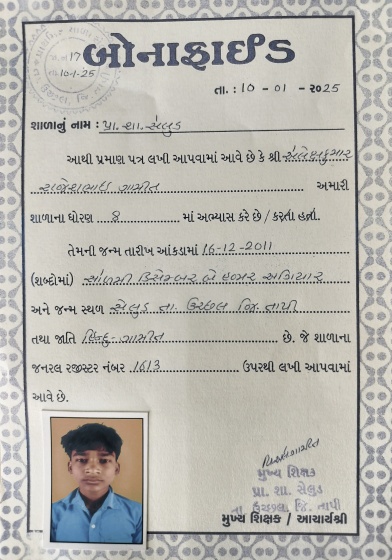 જા.નં. 17
તા. 10-1-25
બોનાફાઈડ
તા. : 10 - 01 - 2025
શાળાનું નામ : પ્રા. શા. સેલુડ
આથી પ્રમાણ પત્ર લખી આપવામાં આવે છે કે શ્રી
રાજેશભાઈ ગામીત અમારી
શાળાના ધોરણ 8 માં અભ્યાસ કરે છે / કરતા હતાં.
તેમની જન્મ તારીખ આંકડામાં 16-12-2011
(શબ્દોમાં) સોળમી ડિસેમ્બર બે હજાર અગિયાર
અને જન્મ સ્થળ સેલુડ તા. ઉચ્છલ જિ. તાપી
તથા જાતિ હિન્દુ-ગામીત છે. જે શાળાના
જનરલ રજીસ્ટર નંબર 1613 ઉપરથી લખી આપવામાં
આવે છે.
મુખ્ય શિક્ષક
પ્રા. શા. સેલુડ
તા. ઉચ્છલ જિ. તાપી
મુખ્ય શિક્ષક / આચાર્યશ્રી